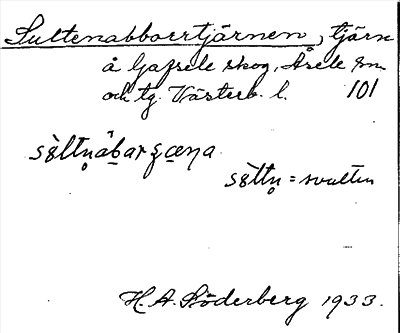 Sultenabborrtjärnen, tjärn
å Gafsele skog, Åsele sn.
och tg. Västerb. l. 101
sòltn̥ àb̠arʒœn̠a
sòltn̥ = svulten
H. A. Söderberg 1933.